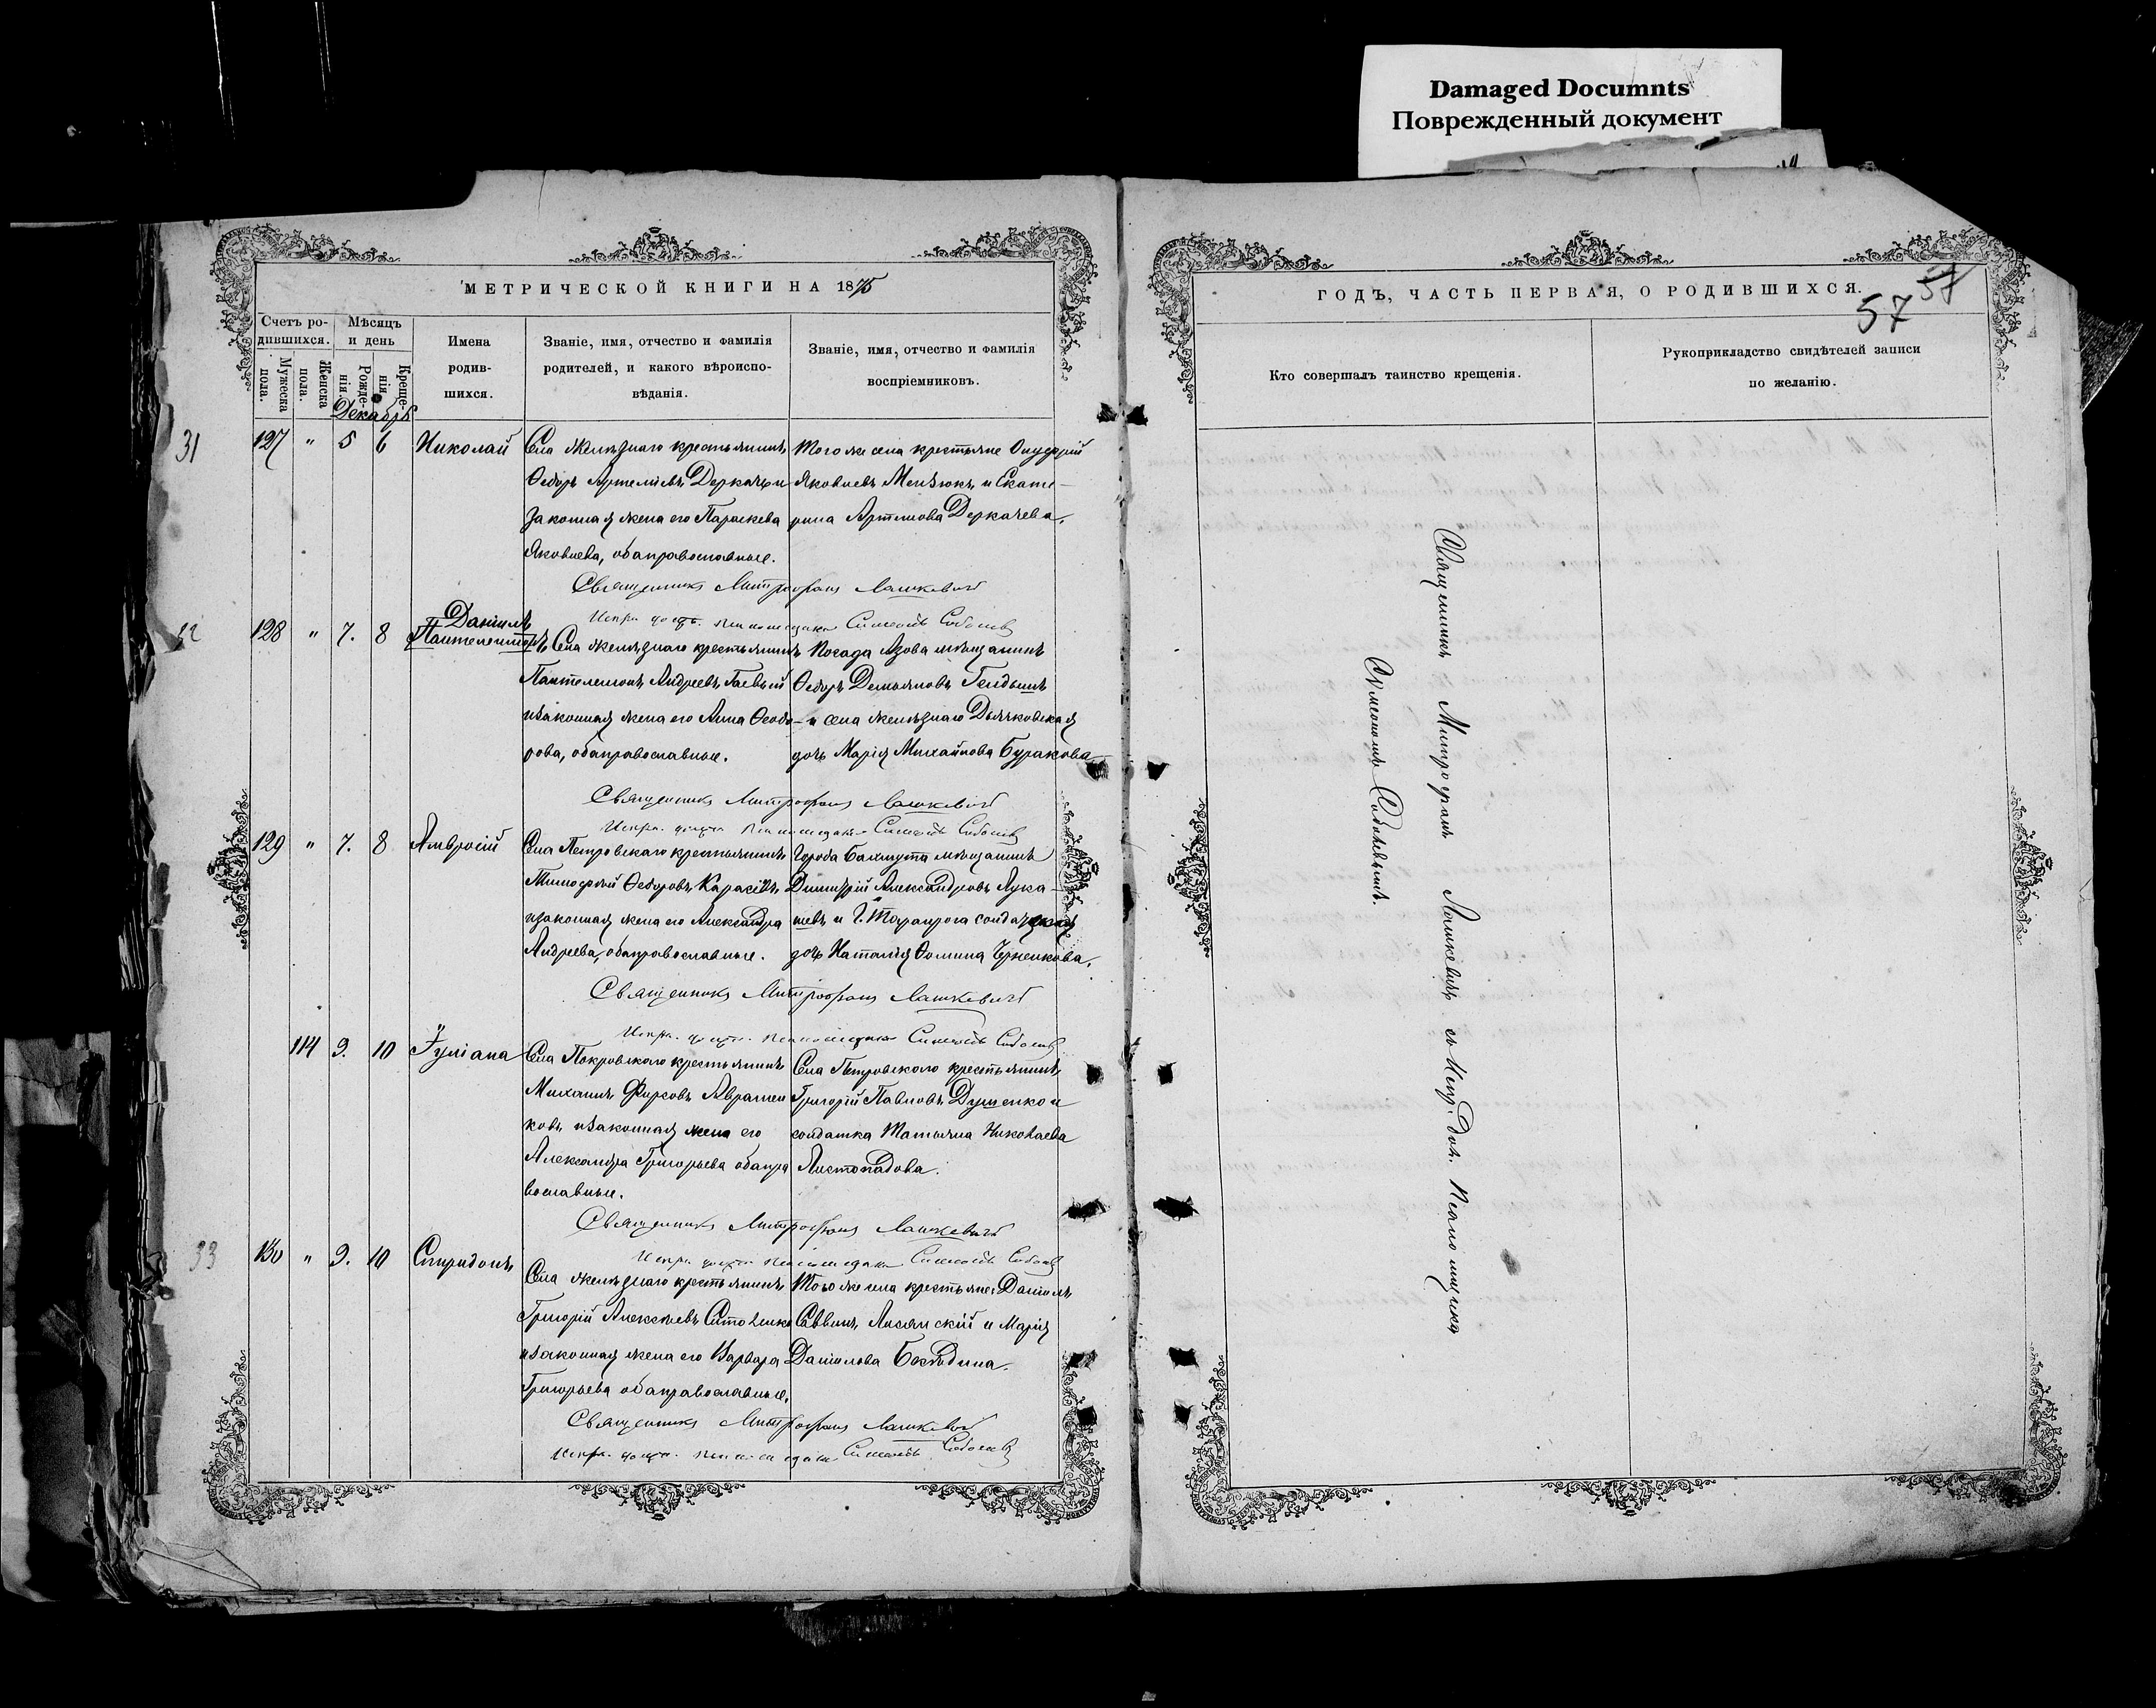 Damaged Documnts
Поврежденный документ
МЕТРИЧЕСКОЙ КНИГИ НА 1875
Счетъ родившихся.
Мужеска пола.
Женска пола.
Мѣсяцъ и день
Рожденія
Крещенія
Имена родившихся.
Званіе, имя, отчество и фамилія родителей, и какого вѣроисповѣданія.
Званіе, имя, отчество и фамилія воспріемниковъ.
Декабрь
31
127 " 5 6 Николай
Села Желѣзнаго крестьянинъ
Ѳедоръ Артемьевъ Деркачъ и
законная жена его Параскева
Яковлева, оба православные.
Того же села крестьяне
Яковлевъ и Екате-
рина Артемова Деркачева.
Священникъ Митрофанъ Лашкевичъ
Испр. долж. псаломщика Симеонъ
32
128 " 7. 8 Даніилъ
Пантелеимонъ
Села Желѣзнаго крестьянинъ
Пантелеимонъ Андреевъ Гаевый
и законная жена его Анна Ѳеодо-
рова, оба православные.
Посада Азова мѣщанинъ
Ѳедоръ Демьяновъ
и села Желѣзнаго Дьячковская
дочь Марія Михайлова Буракова
Священникъ Митрофанъ Лашкевичъ
Испр. долж. псаломщика Симеонъ
129 " 7. 8 Амвросій
Села Петровскаго крестьянинъ
Тимофей Ѳедоровъ
и законная жена его Александра
Андреева, оба православные.
Города Бахмута мѣщанинъ
Димитрій Александровъ Лука-
шевъ и г. Таганрога солдатская
дочь Наталія Ѳомина
Священникъ Митрофанъ Лашкевичъ
Испр. долж. псаломщика Симеонъ
114 9. 10 Іуліана
Села Покровскаго крестьянинъ
Михаилъ Фирсовъ Аврамен
ковъ и законная жена его
Александра Григорьева оба пра
вославные.
Села Петровскаго крестьянинъ
Григорій Павловъ Душенко и
солдатка Татьяна Николаева
Листопадова.
Священникъ Митрофанъ Лашкевичъ
Испр. долж. псаломщика Симеонъ
33
130 " 9. 10 Спиридонъ
Села Желѣзнаго крестьянинъ
Григорій Алексѣевъ
и законная жена его Варвара
Григорьева оба православные.
Того же села крестьяне: Даніилъ
Саввинъ Лисянскій и Марія
Даніилова
Священникъ Митрофанъ Лашкевичъ
Испр. долж. псаломщика Симеонъ
ГОДЪ, ЧАСТЬ ПЕРВАЯ, О РОДИВШИХСЯ.
57
57
Кто совершалъ таинство крещенія.
Рукоприкладство свидѣтелей записи по желанію.
Священникъ Митрофанъ Лашкевичъ съ Испр. дол. Псаломщика
Симеономъ Соболевымъ.